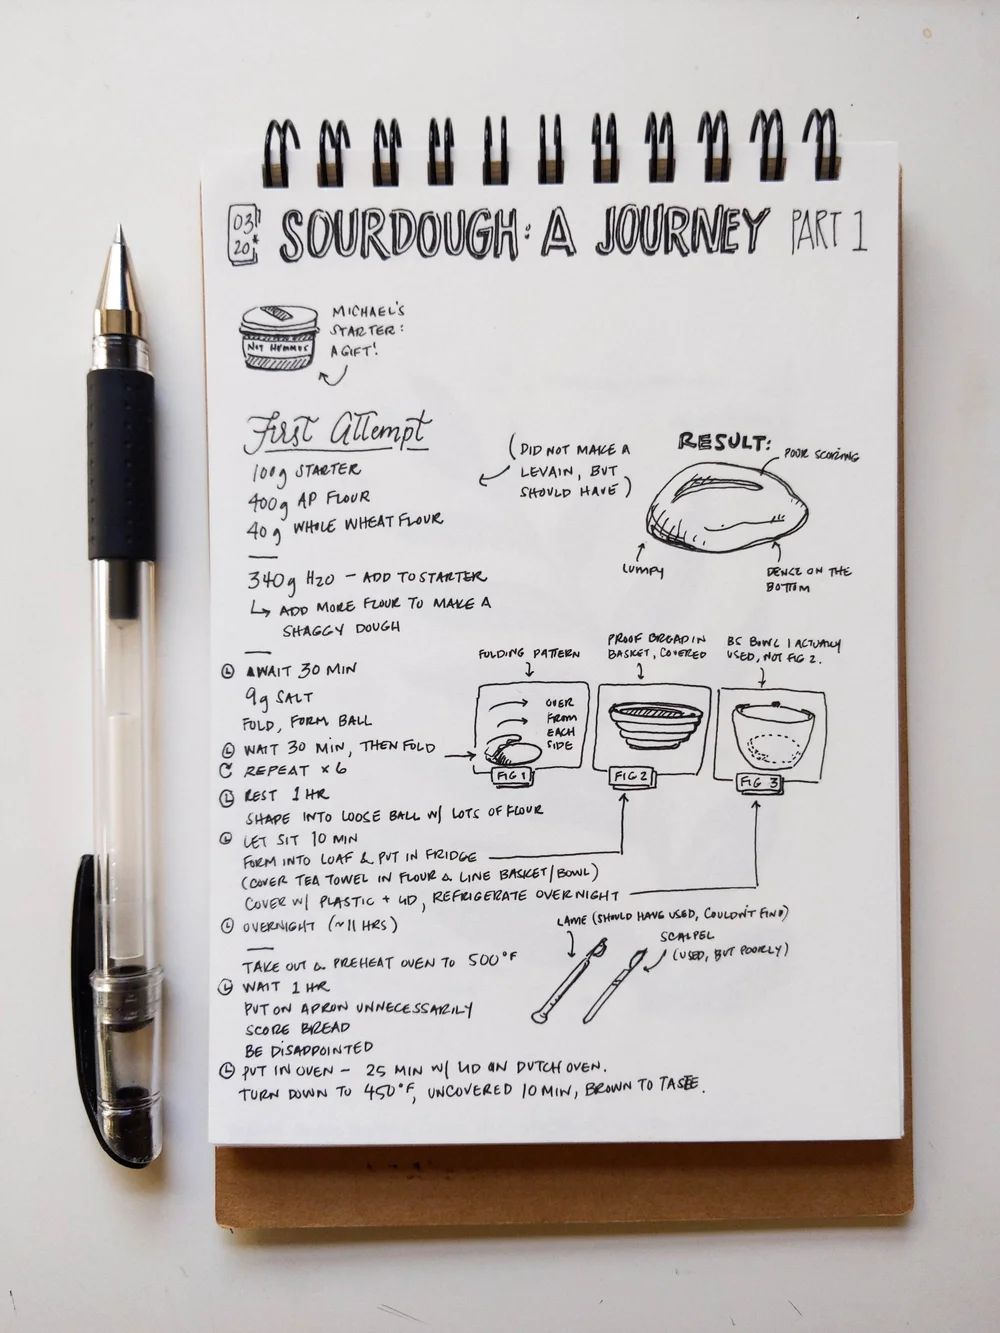 03
20
SOURDOUGH: A JOURNEY PART 1
MICHAEL'S
STARTER:
A GIFT!
NOT HUMMUS
First Attempt
100g STARTER
400g AP FLOUR
40g WHOLE WHEAT FLOUR
(DID NOT MAKE A
LEVAIN, BUT
SHOULD HAVE)
RESULT:
POOR SCORING
LUMPY
DENCE ON THE
BOTTOM
340g H2O - ADD TO STARTER
↳ ADD MORE FLOUR TO MAKE A
SHAGGY DOUGH
AWAIT 30 MIN
9g SALT
FOLD, FORM BALL
WAIT 30 MIN, THEN FOLD
REPEAT x6
REST 1 HR
SHAPE INTO LOOSE BALL W/ LOTS OF FLOUR
LET SIT 10 MIN
FORM INTO LOAF & PUT IN FRIDGE
(COVER TEA TOWEL IN FLOUR & LINE BASKET/BOWL)
COVER W/ PLASTIC + LID, REFRIGERATE OVERNIGHT
OVERNIGHT (~11 HRS)
FOLDING PATTERN
OVER
FROM
EACH
SIDE
FIG 1
PROOF BREAD IN
BASKET, COVERED
FIG 2
BS BOWL I ACTUALLY
USED, NOT FIG 2.
FIG 3
LAME (SHOULD HAVE USED, COULDN'T FIND)
SCALPEL
(USED, BUT POORLY)
TAKE OUT & PREHEAT OVEN TO 500°F
WAIT 1 HR
PUT ON APRON UNNECESSARILY
SCORE BREAD
BE DISAPPOINTED
PUT IN OVEN - 25 MIN W/ LID ON DUTCH OVEN.
TURN DOWN TO 450°F, UNCOVERED 10 MIN, BROWN TO TASTE.